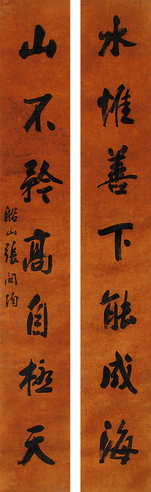 水惟善下能成海
山不矜高自極天
船山張問陶